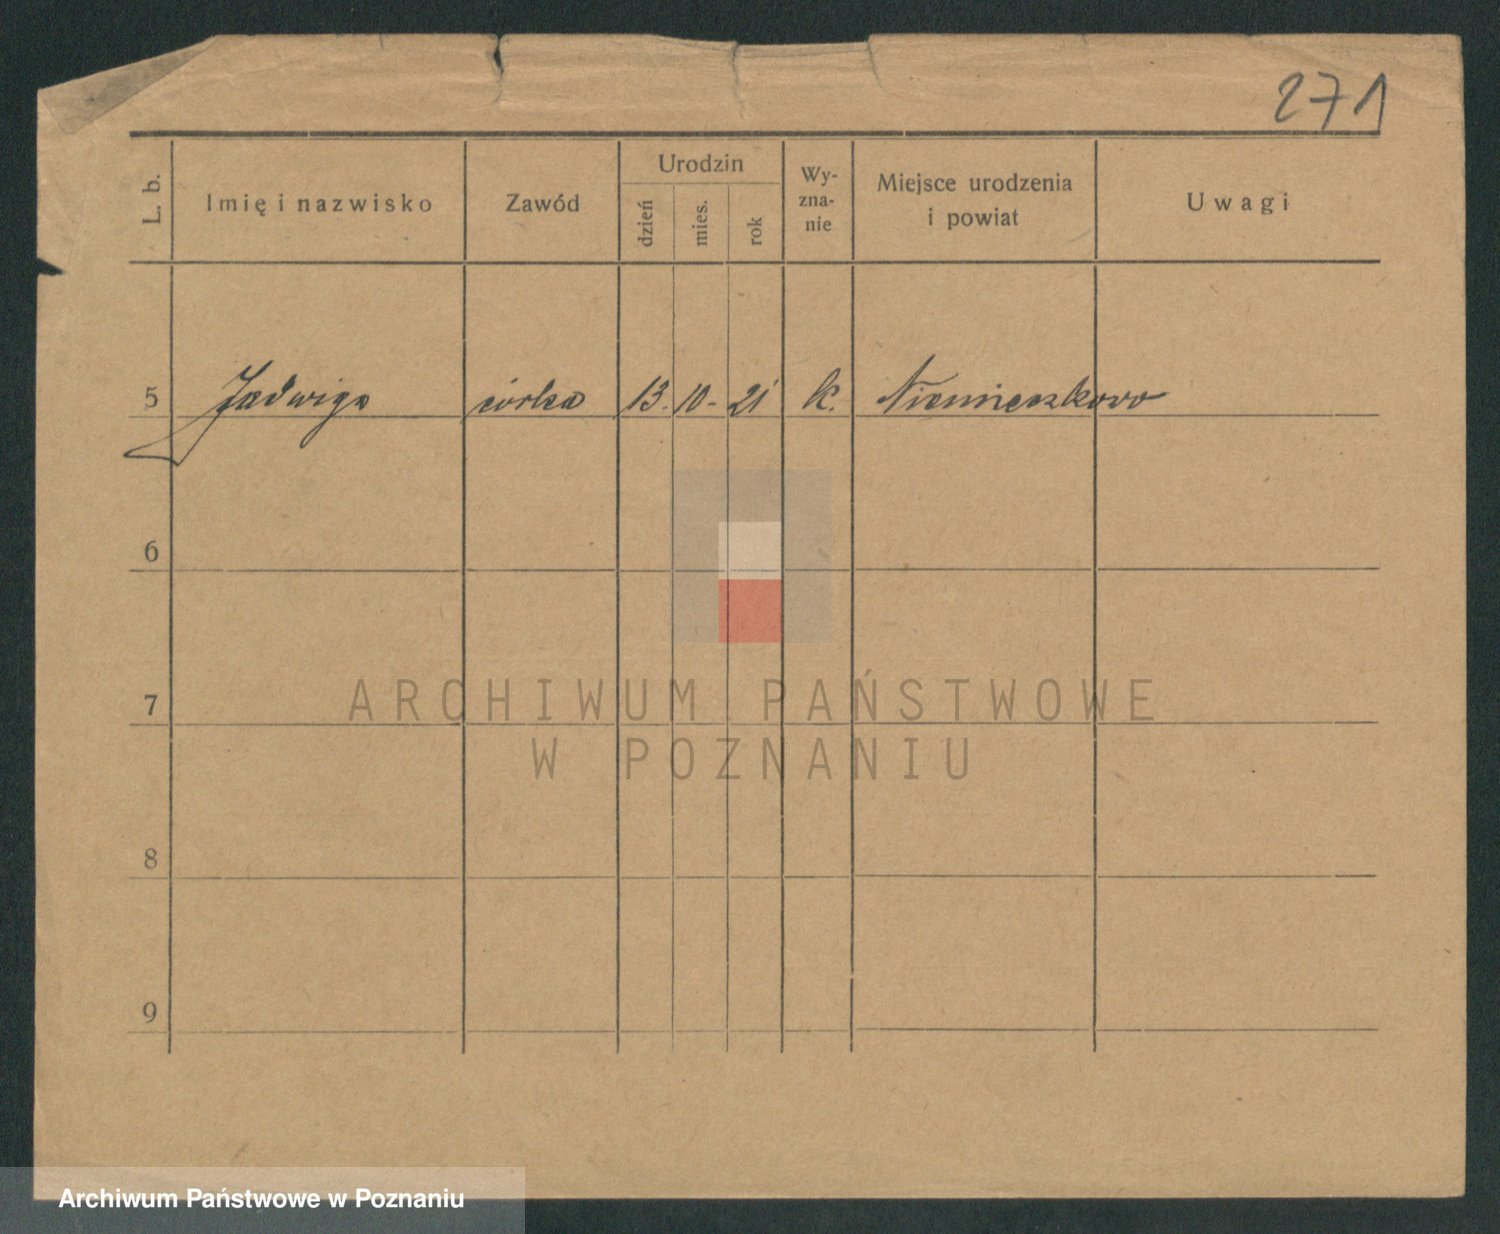 271
L. b.
Imię i nazwisko
Zawód
Urodzin
dzień
mies.
rok
Wy-
zna-
nie
Miejsce urodzenia
i powiat
Uwagi
5 Jadwiga córka 13. 10- 21 k. Niemieczkowo
6
7
8
9
ARCHIWUM PAŃSTWOWE
W POZNANIU
Archiwum Państwowe w Poznaniu